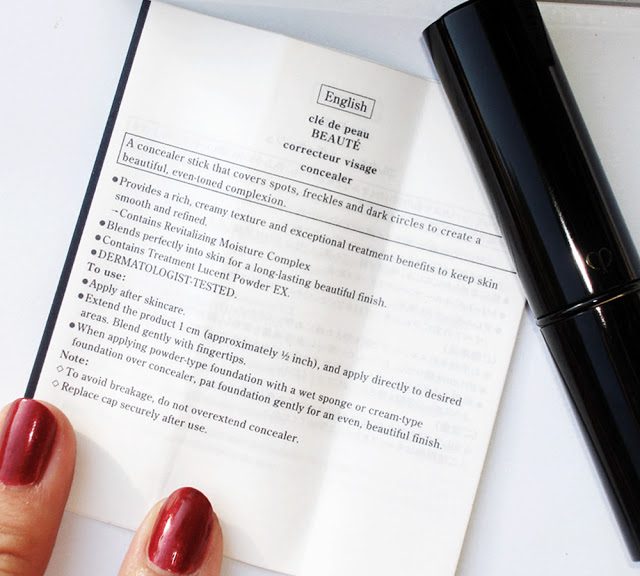 English
clé de peau
BEAUTÉ
correcteur visage
concealer
A concealer stick that covers spots, freckles and dark circles to create a
beautiful, even-toned complexion.
●Provides a rich, creamy texture and exceptional treatment benefits to keep skin
smooth and refined.
→Contains Revitalizing Moisture Complex
●Blends perfectly into skin for a long-lasting beautiful finish.
●Contains Treatment Lucent Powder EX.
●DERMATOLOGIST-TESTED.
To use:
●Apply after skincare.
●Extend the product 1 cm (approximately ½ inch), and apply directly to desired
areas. Blend gently with fingertips.
●When applying powder-type foundation with a wet sponge or cream-type
foundation over concealer, pat foundation gently for an even, beautiful finish.
Note:
◇To avoid breakage, do not overextend concealer.
◇Replace cap securely after use.